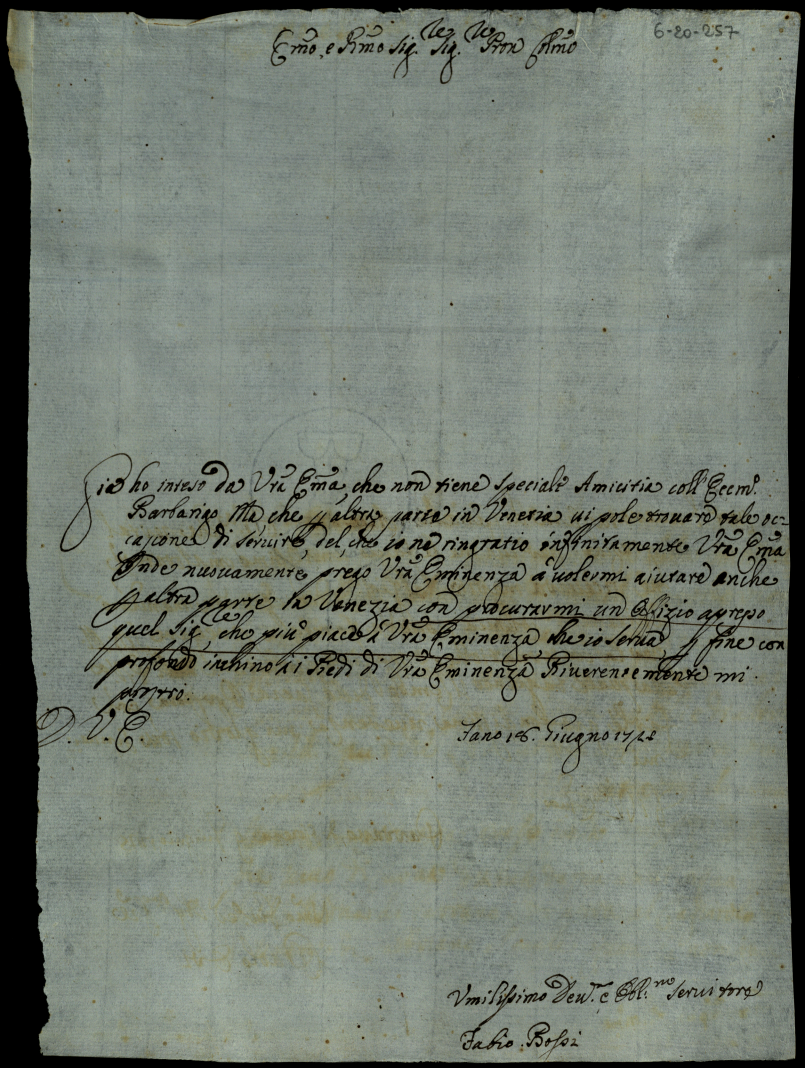 6-20-257
Emo, e Rmo Sig.re Sig.re Pron Colmo
Gia ho inteso da Vra Ema che non tiene speciale Amicitia coll' Eccmo.
Barbarigo Ma che p altra parte in Venetia ui pole trouare tale oc=
casione di seruire, del che io ne ringratio infinitamente Vra Ema
Onde nuouamente prego Vra Eminenza à uolermi aiutare anche
p altra parte in Venezia con procurarmi un Offizio apreso
quel Sig.re che piu piace à Vra Eminenza che io serua, p fine con
profondo inchino ai Piedi di Vra Eminenza Riuerentemente mi
prostro.
D. V. E.
Fano 16. Giugno
Vmilissimo Deu.mo e Obl.mo seruitore
Fabio Bossi